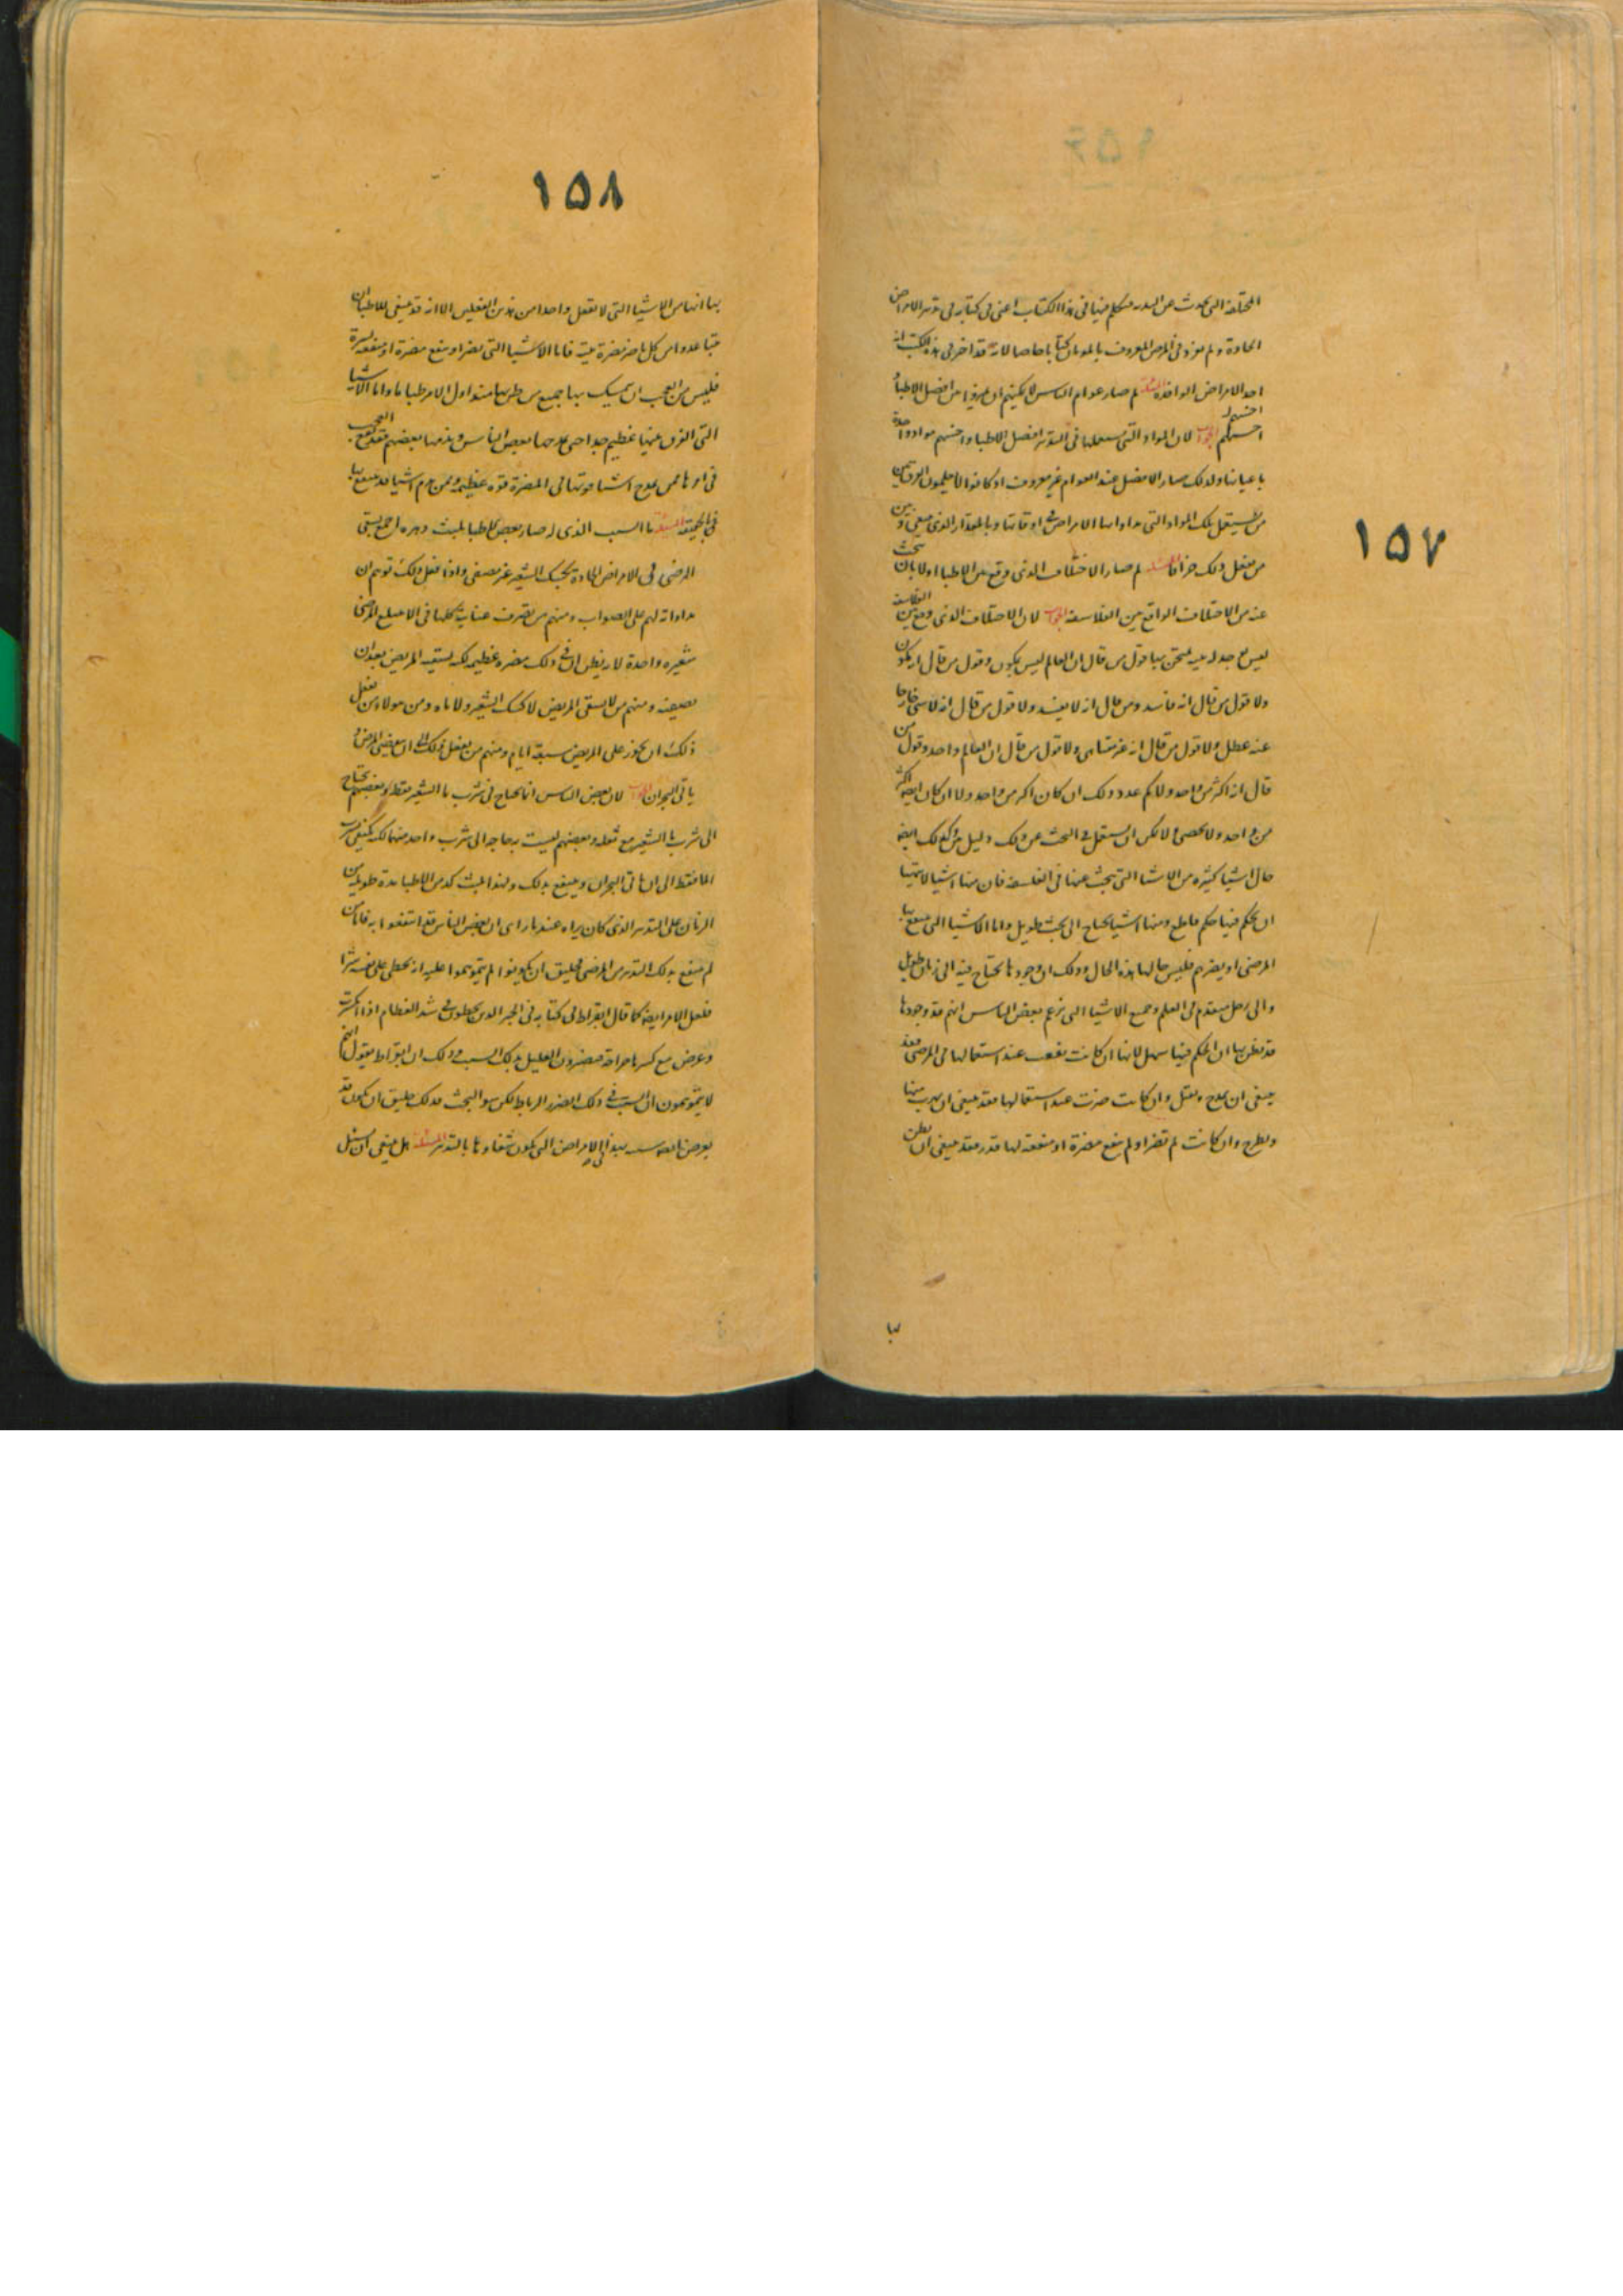 ١٥٧
المختلفة التي تحدث عن التدبير فتكلم فيها في هذا الكتاب اعني في كتابه في تدبير الامراض
الحادة ولم يفرد في المرض المعروف بالموتان كتابا خاصا لانه قد اخبر في هذه الكتب انه
احد الامراض الوافدة المسئلة لم صار عوام الناس لا يمكنهم ان يميزوا بين افضل الاطباء
اخسهم الجواب لان المواد التي يستعملها في التدبير افضل الاطبا واخسهم مواد واحدة
باعيانها ولذلك صار الافضل عند العوام غير معروف اذ كانوا لا يعلمون الفرق بين
من يستعمل تلك المواد التي مداواتها الامراض في اوقاتها وبالمقدار الذي ينبغي وبين
من يفعل ذلك جزافا المسئلة لم صار الاختلاف الذي وقع بين الاطبا اولا بان يبحث
عنه من الاختلاف الواقع بين الفلاسفة الجواب لان الاختلاف الذي وقع بين الفلاسفة
ليس يوجد له محنة يمتحن بها قول من قال ان العالم ليس بمكون وقول من قال انه مكون
ولا قول من قال انه فاسد ومن قال انه لا يفسد ولا قول من قال انه لا شي خارجا
عنه ولا قول من قال انه غير متناهى ولا قول من قال ان العالم واحد وقول من
قال انه اكثر من واحد ولا كم عدد ذلك ان كان اكثر من واحد ولا ان كان ايضا اكثر
من واحد ولا يحصى ولا يمكن ان يستعمل في البحث عن ذلك دليل وكذلك ايضا
حال اشيا كثيرة من الاشيا التي يبحث عنها في الفلسفة فان منها اشيا لا يتهيا
ان يحكم فيها حكم قاطع ومنها اشيا يحتاج الى بحث طويل واما الاشيا التي ينتفع بها
المرضى او يضرهم فليس حالها هذه الحال وذلك ان وجودها يحتاج فيه الى زمان طويل
والى رجل متقدم في العلم وجميع الاشيا التي يزعم بعض الناس انهم قد وجدوها
قد يظن بها ان الحكم فيها سهل لانها ان كانت نفعت عند استعمالها في المرضى فقد
ينبغي ان يمدح ويقبل وان كانت ضرت عند استعمالها فقد ينبغي ان يهرب منها
ويطرح وان كانت لم تضر او لم ينفع مضرة او منفعة لها قدر فقد ينبغي ان يظن
بها
١٥٨
بها انها من الاشيا التي لا تفعل واحدا من هذين الفعلين الا انه قد ينبغي للاطبا ان
يتباعدوا من كل ما يضر مضرة بينة فاما الاشيا التي تضر او ينفع مضرة او منفعة يسيرة
فليس من العجب ان يتمسك بها جميع من ظن بها منذ اول الامر ظنا ما واما الاشيا
التي الفرق عنها عظيم جدا حتى يمدحها بعض الناس ويذمها بعضهم فقد يقع العجب
في امرها ممن يمدح اشيا قوتها في المضرة قوة عظيمة وممن يذم اشيا قد ينتفع بها
في الحقيقة المسئلة ما السبب الذي له صار بعض الاطبا يلبث دهره اجمع يسقي
المرضى في الامراض الحادة كشك الشعير غير مصفى واذا فعل ذلك توهم ان
مداواته لهم على الصواب ومنهم من يصرف عنايته كلها في الا يبتلع المريض
شعيرة واحدة لانه يظن ان في ذلك مضرة عظيمة لكنه يسقيه المريض بعد ان
يصفيه ومنهم من لا يسقي المريض لا كشك الشعير ولا ماءه ومن هولاء من يفعل
ذلك الى ان يجوز على المريض سبعة ايام ومنهم من يفعل ذلك الى ان ينقضي المرض او
ياتي البحران الجواب لان بعض الناس انما يحتاج في شرب ما الشعير فقط وبعضهم يحتاج
الى شرب ما الشعير مع ثفله وبعضهم ليست به حاجة الى شرب واحد منهما لكنه يكتفي بشرب
الما فقط الى ان ياتي البحران وينتفع بذلك ولهذا لبث كثير من الاطبا مدة طويلة من
الزمان على التدبير الذي كان يراه عند ما راى ان بعض الناس قد انتفعوا به فاما من
لم ينتفع بذلك التدبير من المرضى فخليق ان يكونوا لم يتوهموا عليه انه يخطي على نفسه شرا
فلعل الامر ايضا كما قال ابقراط في كتابه في الجبر الذين يخطون في شد العظام اذا انكسرت
وعرض مع كسرها جراحة فيضرون العليل بذلك السبب وذلك ان ابقراط يقول انهم
لا يتوهمون ان السبب في ذلك الضرر الرباط لكن سوء البخت فكذلك خليق ان يكون قد
يعرض في الامراض التي يكون شفاوها بالتدبير المسئلة هل ينبغي ان يسئل